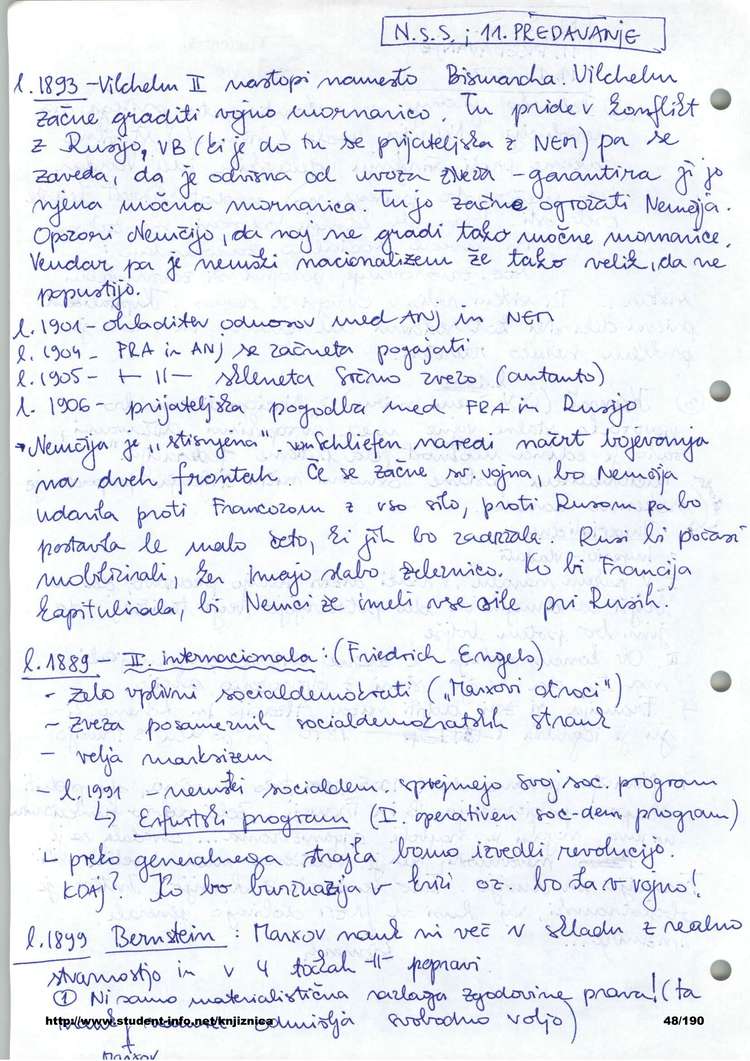 N.S.S. ; 11. PREDAVANJE
l. 1893 - Vilchelm II nastopi namesto Bismarcha. Vilchelm
začne graditi vojno mornarico. Tu pride v konflikt
z Rusijo, VB (ki je do tu še prijateljska z NEM) pa se
zaveda, da je odvisna od uvoza - garantira ji jo
njena močna mornarica. Tu jo začne ogrožati Nemčija.
Opozori Nemčijo, da naj ne gradi tako močne mornarice.
Vendar pa je nemški nacionalizem že tako velik, da ne
popustijo.
l. 1901 - ohladitev odnosov med ANJ in NEM
l. 1904 - FRA in ANJ se začneta pogajati
l. 1905 - -||- skleneta Srčno zvezo (antanto)
l. 1906 - prijateljska pogodba med FRA in Rusijo
→ Nemčija je „stisnjena" von Schliefen naredi načrt bojevanja
na dveh frontah. Če se začne sv. vojna, bo Nemčija
udarila proti Francozom z vso silo, proti Rusom pa bo
postavila le malo čето, ki jih bo zadržala. Rusi bi počasi
mobilizirali, ker imajo slabo železnico. Ko bi Francija
kapitulirala, bi Nemci že imeli vse sile pri Rusih.
l. 1889 - II. internacionala : (Friedrich Engels)
- zelo vplivni socialdemokrati („Marxovi otroci")
- zveza posameznih socialdemokratskih strank
- velja marksizem
- l. 1991 - nemški socialdem. sprejmejo svoj soc. program
↳ Erfurtski program (I. operativen soc-dem program)
- preko generalnega štrajka bomo izvedli revolucijo.
KDAJ? Ko bo buržuazija v krizi oz. bo šla v vojno!
l. 1899 Bernstein : Marxov nauk ni več v skladu z realno
stvarnostjo in v 4 točkah -||- popravi.
① Ni samo materialistična razlaga zgodovine prava! (ta
odmišlja svobodno voljo)
http://www.student-info.net/knjiznica
48/190
Marxov